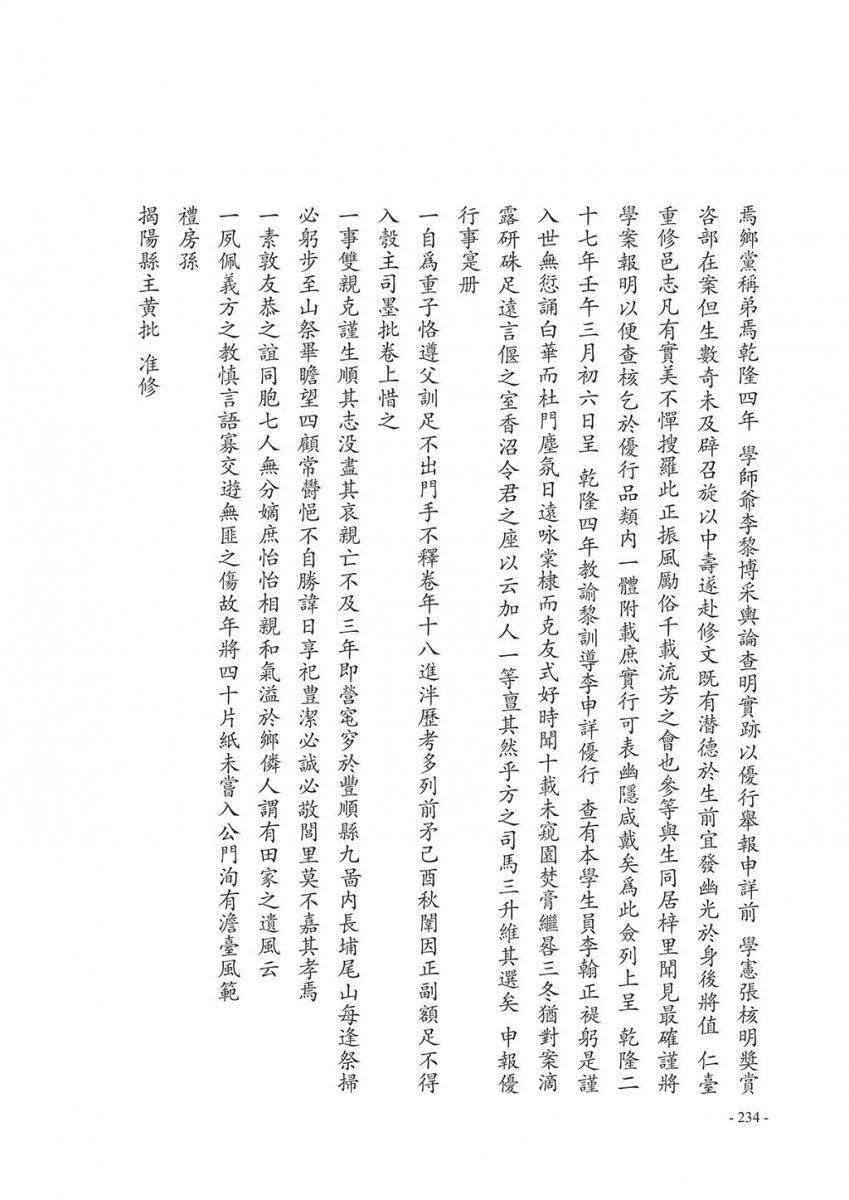 焉鄉黨稱弟焉乾隆四年 學師爺李黎博采輿論查明實跡以優行舉報申詳前 學憲張核明獎賞
咨部在案但生數奇未及辟召旋以中壽遂赴修文既有潛德於生前宜發幽光於身後將值 仁臺
重修邑志凡有實美不憚搜羅此正振風勵俗千載流芳之會也參等與生同居梓里聞見最確謹將
學案報明以便查核乞於優行品類内一體附載庶實行可表幽隱咸戴矣爲此僉列上呈 乾隆二
十七年壬午三月初六日呈 乾隆四年教諭黎訓導李申詳優行 查有本學生員李翰正禔躬是謹
入世無愆誦白華而杜門塵氛日遠咏棠棣而克友式好時聞十載未窺園焚膏繼晷三冬猶對案滴
露研硃足遠言偃之室香沼令君之座以云加人一等亶其然乎方之司馬三升維其選矣 申報優
行事寔册
一自爲重子恪遵父訓足不出門手不釋卷年十八進泮歷考多列前矛己酉秋闈因正副額足不得
入彀主司墨批卷上惜之
一事雙親克謹生順其志没盡其哀親亡不及三年即營窀穸於豐順縣九啚内長埔尾山每逢祭掃
必躬步至山祭畢瞻望四顧常欝悒不自勝諱日享祀豊潔必誠必敬閭里莫不嘉其孝焉
一素敦友恭之誼同胞七人無分嫡庶怡怡相親和氣溢於鄉鄰人謂有田家之遺風云
一夙佩義方之教慎言語寡交遊無匪之傷故年將四十片紙未嘗入公門洵有澹臺風範
禮房孫
揭陽縣主黄批 准修
- 234 -